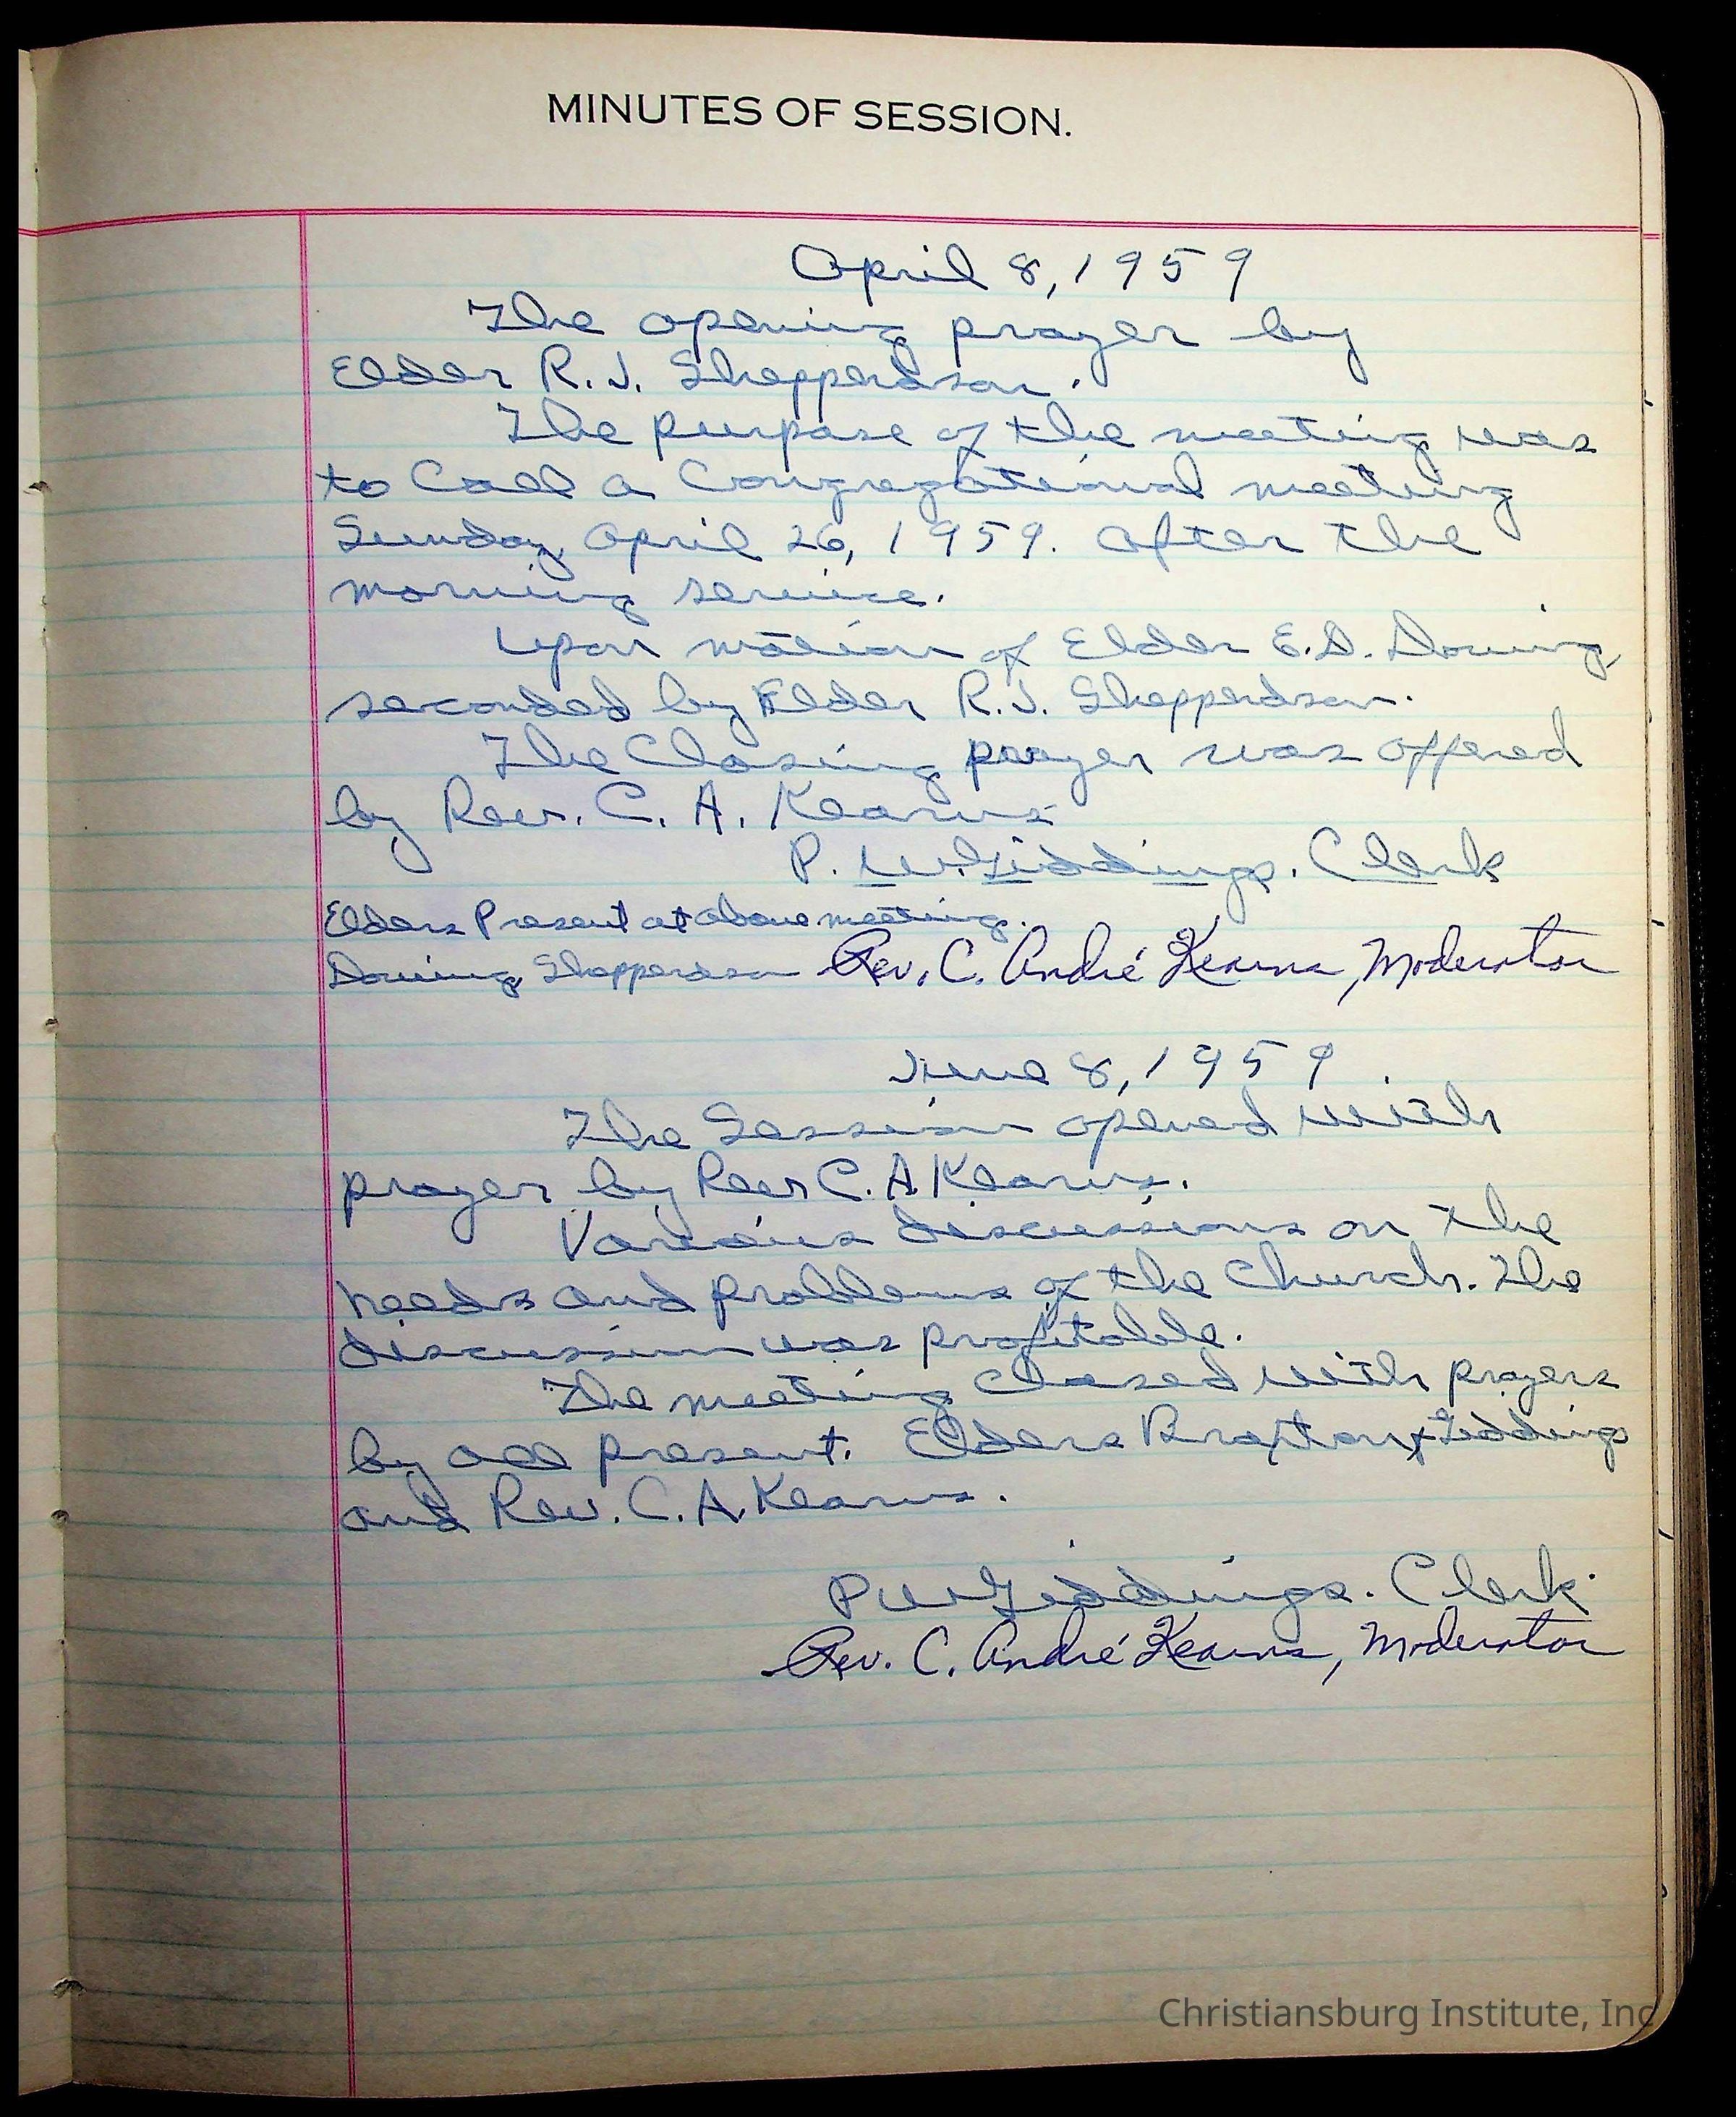 MINUTES OF SESSION.
April 8, 1959
The opening prayer by
Elder R.J. Shepperdson.
The purpose of the meeting was
to Call a Congregational meeting
Sunday April 26, 1959. After the
morning service.
Upon motion of Elder E.D. Dowing,
seconded by Elder R.J. Shepperdson.
The Closing prayer was offered
by Rev. C. A. Kearns
P. W. Giddings. Clerk
Elders Present at above meeting.
Dowing, Shepperdson Rev. C. André Kearns, Moderator
June 8, 1959
The Session opened with
prayer by Rev C. A Kearns.
Various discussions on the
needs and problems of the Church. The
discussion was profitable.
The meeting closed with prayers
by all present. Elders Braxton + Giddings
and Rev. C. A. Kearns.
P W Giddings. Clerk.
Rev. C. André Kearns, Moderator
Christiansburg Institute, Inc